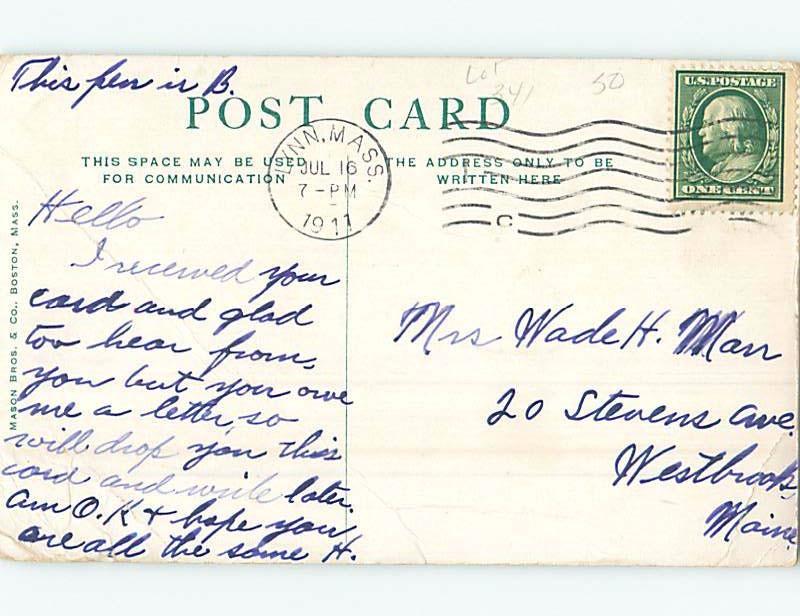 This pen is B.
Lot
241
50
POST CARD
U.S. POSTAGE
ONE CENT
THIS SPACE MAY BE USED
FOR COMMUNICATION
THE ADDRESS ONLY TO BE
WRITTEN HERE
LYNN, MASS.
JUL 16
7-PM
1911
C
MASON BROS. & CO., BOSTON, MASS.
Hello
I received your
card and glad
too hear from,
you but you owe
me a letter, so
will drop you this
card and write later.
am O.K + hope you
are all the same H.
Mrs Wade H. Marr
20 Stevens Ave.
Westbrook,
Maine.